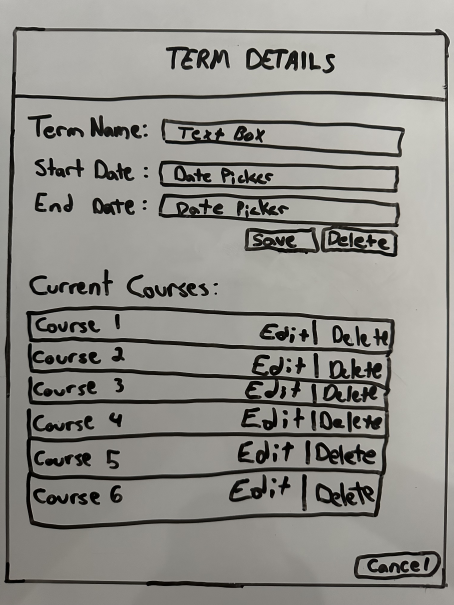 TERM DETAILS
Term Name: Text Box
Start Date: Date Picker
End Date: Date Picker
Save Delete
Current Courses:
Course 1 Edit | Delete
Course 2 Edit | Delete
Course 3 Edit | Delete
Course 4 Edit | Delete
Course 5 Edit | Delete
Course 6 Edit | Delete
Cancel